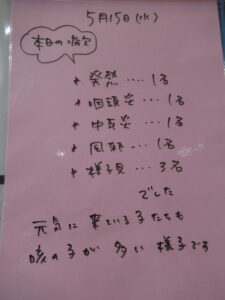 5月15日(水)
本日の病欠
* 発熱 … 1名
* 咽頭炎 … 1名
* 中耳炎 … 1名
* 風邪 … 1名
* 様子見 … 3名
でした
元気に来ている子たちも
咳の子が多い様子です